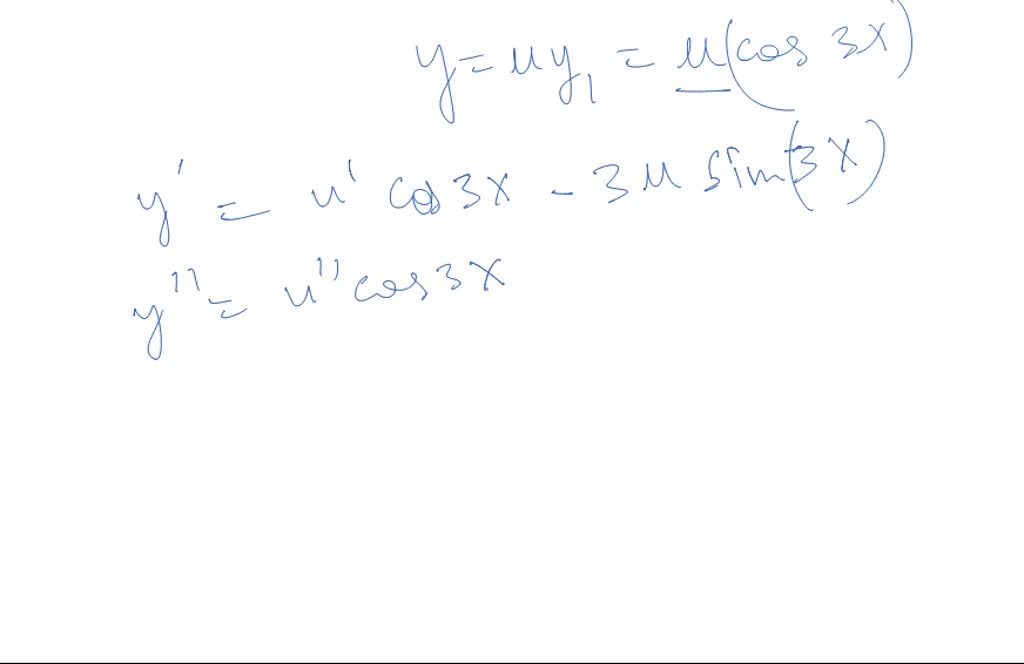 y = uy₁ = u(cos 3x)
y' = u' cos 3x - 3u sin(3x)
y'' = u'' cos 3x